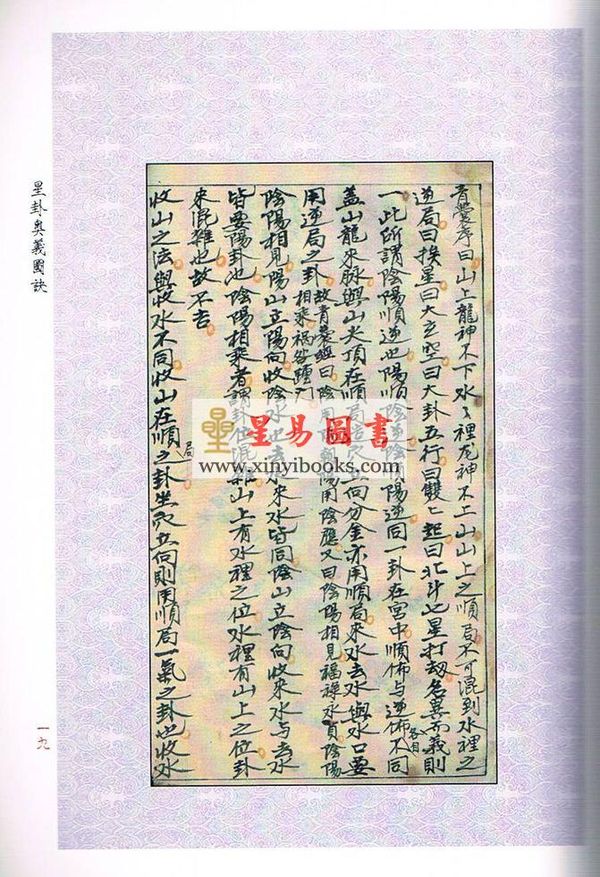 青囊序曰山上龍神不下水〻裡龙神不上山山上之順局不可混到水裡之
逆局曰挨星曰大玄空曰大卦五行曰雙〻起曰北斗七星打劫名異而義則
一此所謂陰陽順逆也陽順陰逆陰陽逆同一卦在宮中順佈与逆佈不同
各自
盖山龍來脉與山尖頂在順局造穴立向分金亦用順局來水去水與水口要
用逆局之卦故青囊經曰陰用陽朝陽用陰應又曰陰陽相見福祿永貞陰陽
相乘禍咎踵门
陰陽相見陽山立陽向收陰水也來水皆同陰山立陰向收來水与去水
皆要陽卦也陰陽相乘者謂卦位混亂山上有水裡之位水裡有山上之位卦
來混雜也故不吉
收山之法與收水不同收山在順局之卦坐穴立向則用順局一氣之卦也收水
星卦奥義圖訣
一九
星易圖書
www.xinyibooks.com